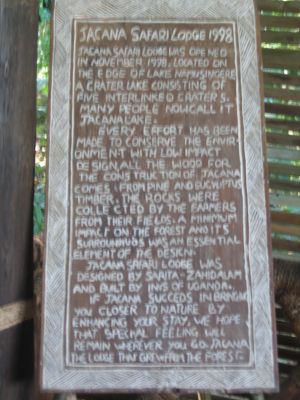 JACANA SAFARI LODGE 1998
JACANA SAFARI LODGE WAS OPENED
IN NOVEMBER 1998. LOCATED ON
THE EDGE OF LAKE NAMUSINGERE
A CRATER LAKE CONSISTING OF
FIVE INTERLINKED CRATERS.
MANY PEOPLE NOW CALL IT
JACANA LAKE.
EVERY EFFORT HAS BEEN
MADE TO CONSERVE THE ENVIR-
ONMENT WITH LOW IMPACT
DESIGN ALL THE WOOD FOR
THE CONSTRUCTION OF JACANA
COMES FROM PINE AND EUCYLIPTUS
TIMBER. THE ROCKS WERE
COLLECTED BY THE FARMERS
FROM THEIR FIELDS. A MINIMUM
IMPACT ON THE FOREST AND ITS
SURROUNDINGS WAS AN ESSENTIAL
ELEMENT OF THE DESIGN.
JACANA SAFARI LODGE WAS
DESIGNED BY SARITA-ZAHIDALAM
AND BUILT BY INNS OF UGANDA.
IF JACANA SUCCEDS IN BRINGING
YOU CLOSER TO NATURE BY
ENHANCING YOUR STAY, WE HOPE
THAT SPECIAL FEELING WILL
REMAIN WHEREVER YOU GO. JACANA
THE LODGE THAT GREW FROM THE FOREST.